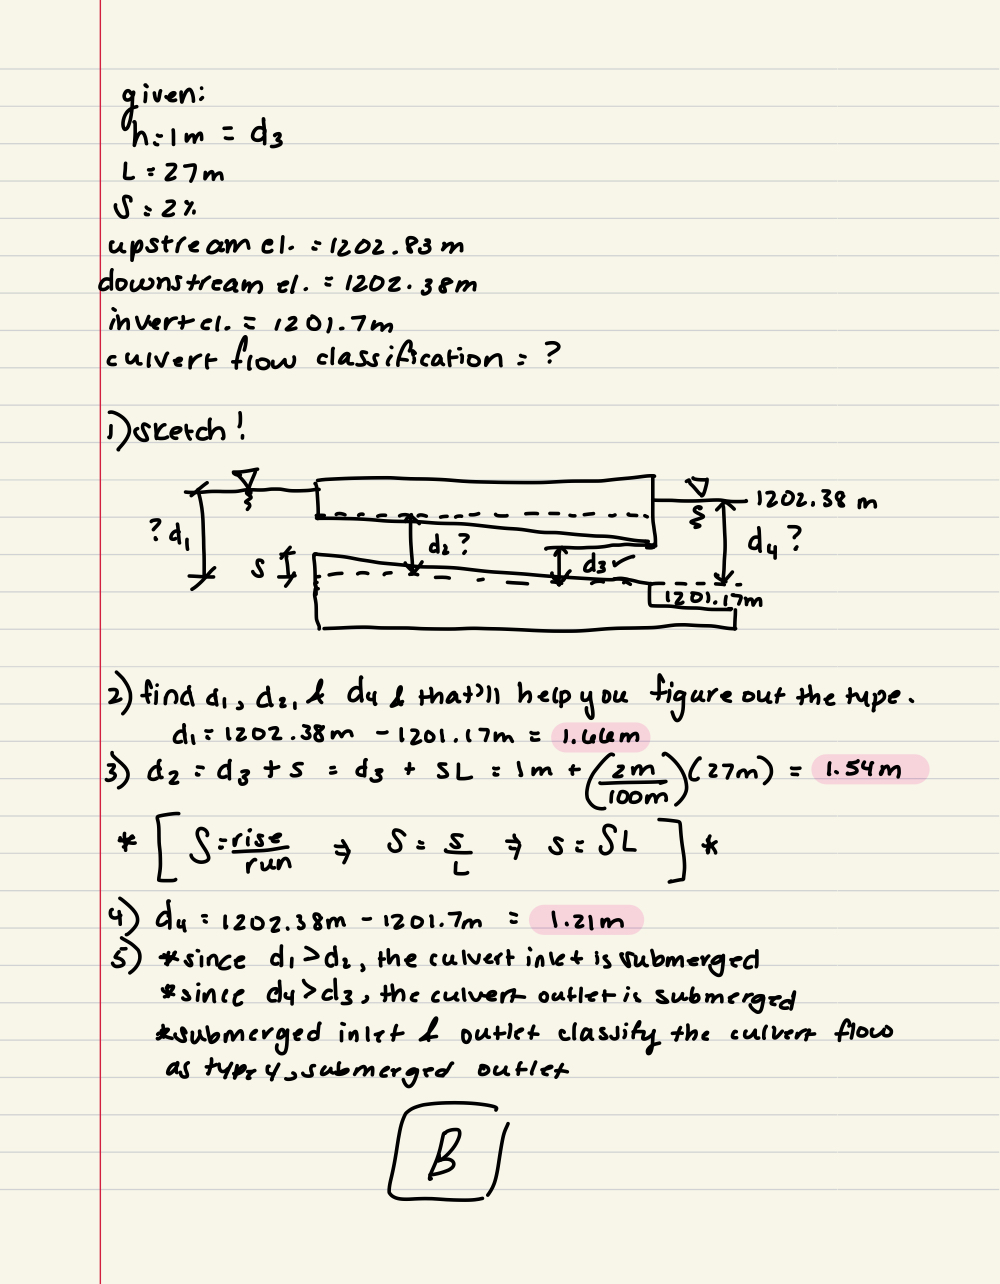 given:
h = 1m = d3
L = 27m
S = 2%
upstream el. = 1202.83 m
downstream el. = 1202.38m
invert el. = 1201.7m
culvert flow classification = ?
1) sketch!
1202.38 m
? d1
d2 ?
d4 ?
S
d3 ✓
1201.17m
2) find d1, d2, & d4 & that'll help you figure out the type.
d1 = 1202.38m - 1201.17m = 1.66m
3) d2 = d3 + s = d3 + SL = 1m + (2m/100m)(27m) = 1.54m
* [ S = rise/run ⇒ S = s/L ⇒ s = SL ] *
4) d4 = 1202.38m - 1201.7m = 1.21m
5) *since d1 > d2, the culvert inlet is submerged
*since d4 > d3, the culvert outlet is submerged
*submerged inlet & outlet classify the culvert flow
as type 4, submerged outlet
B